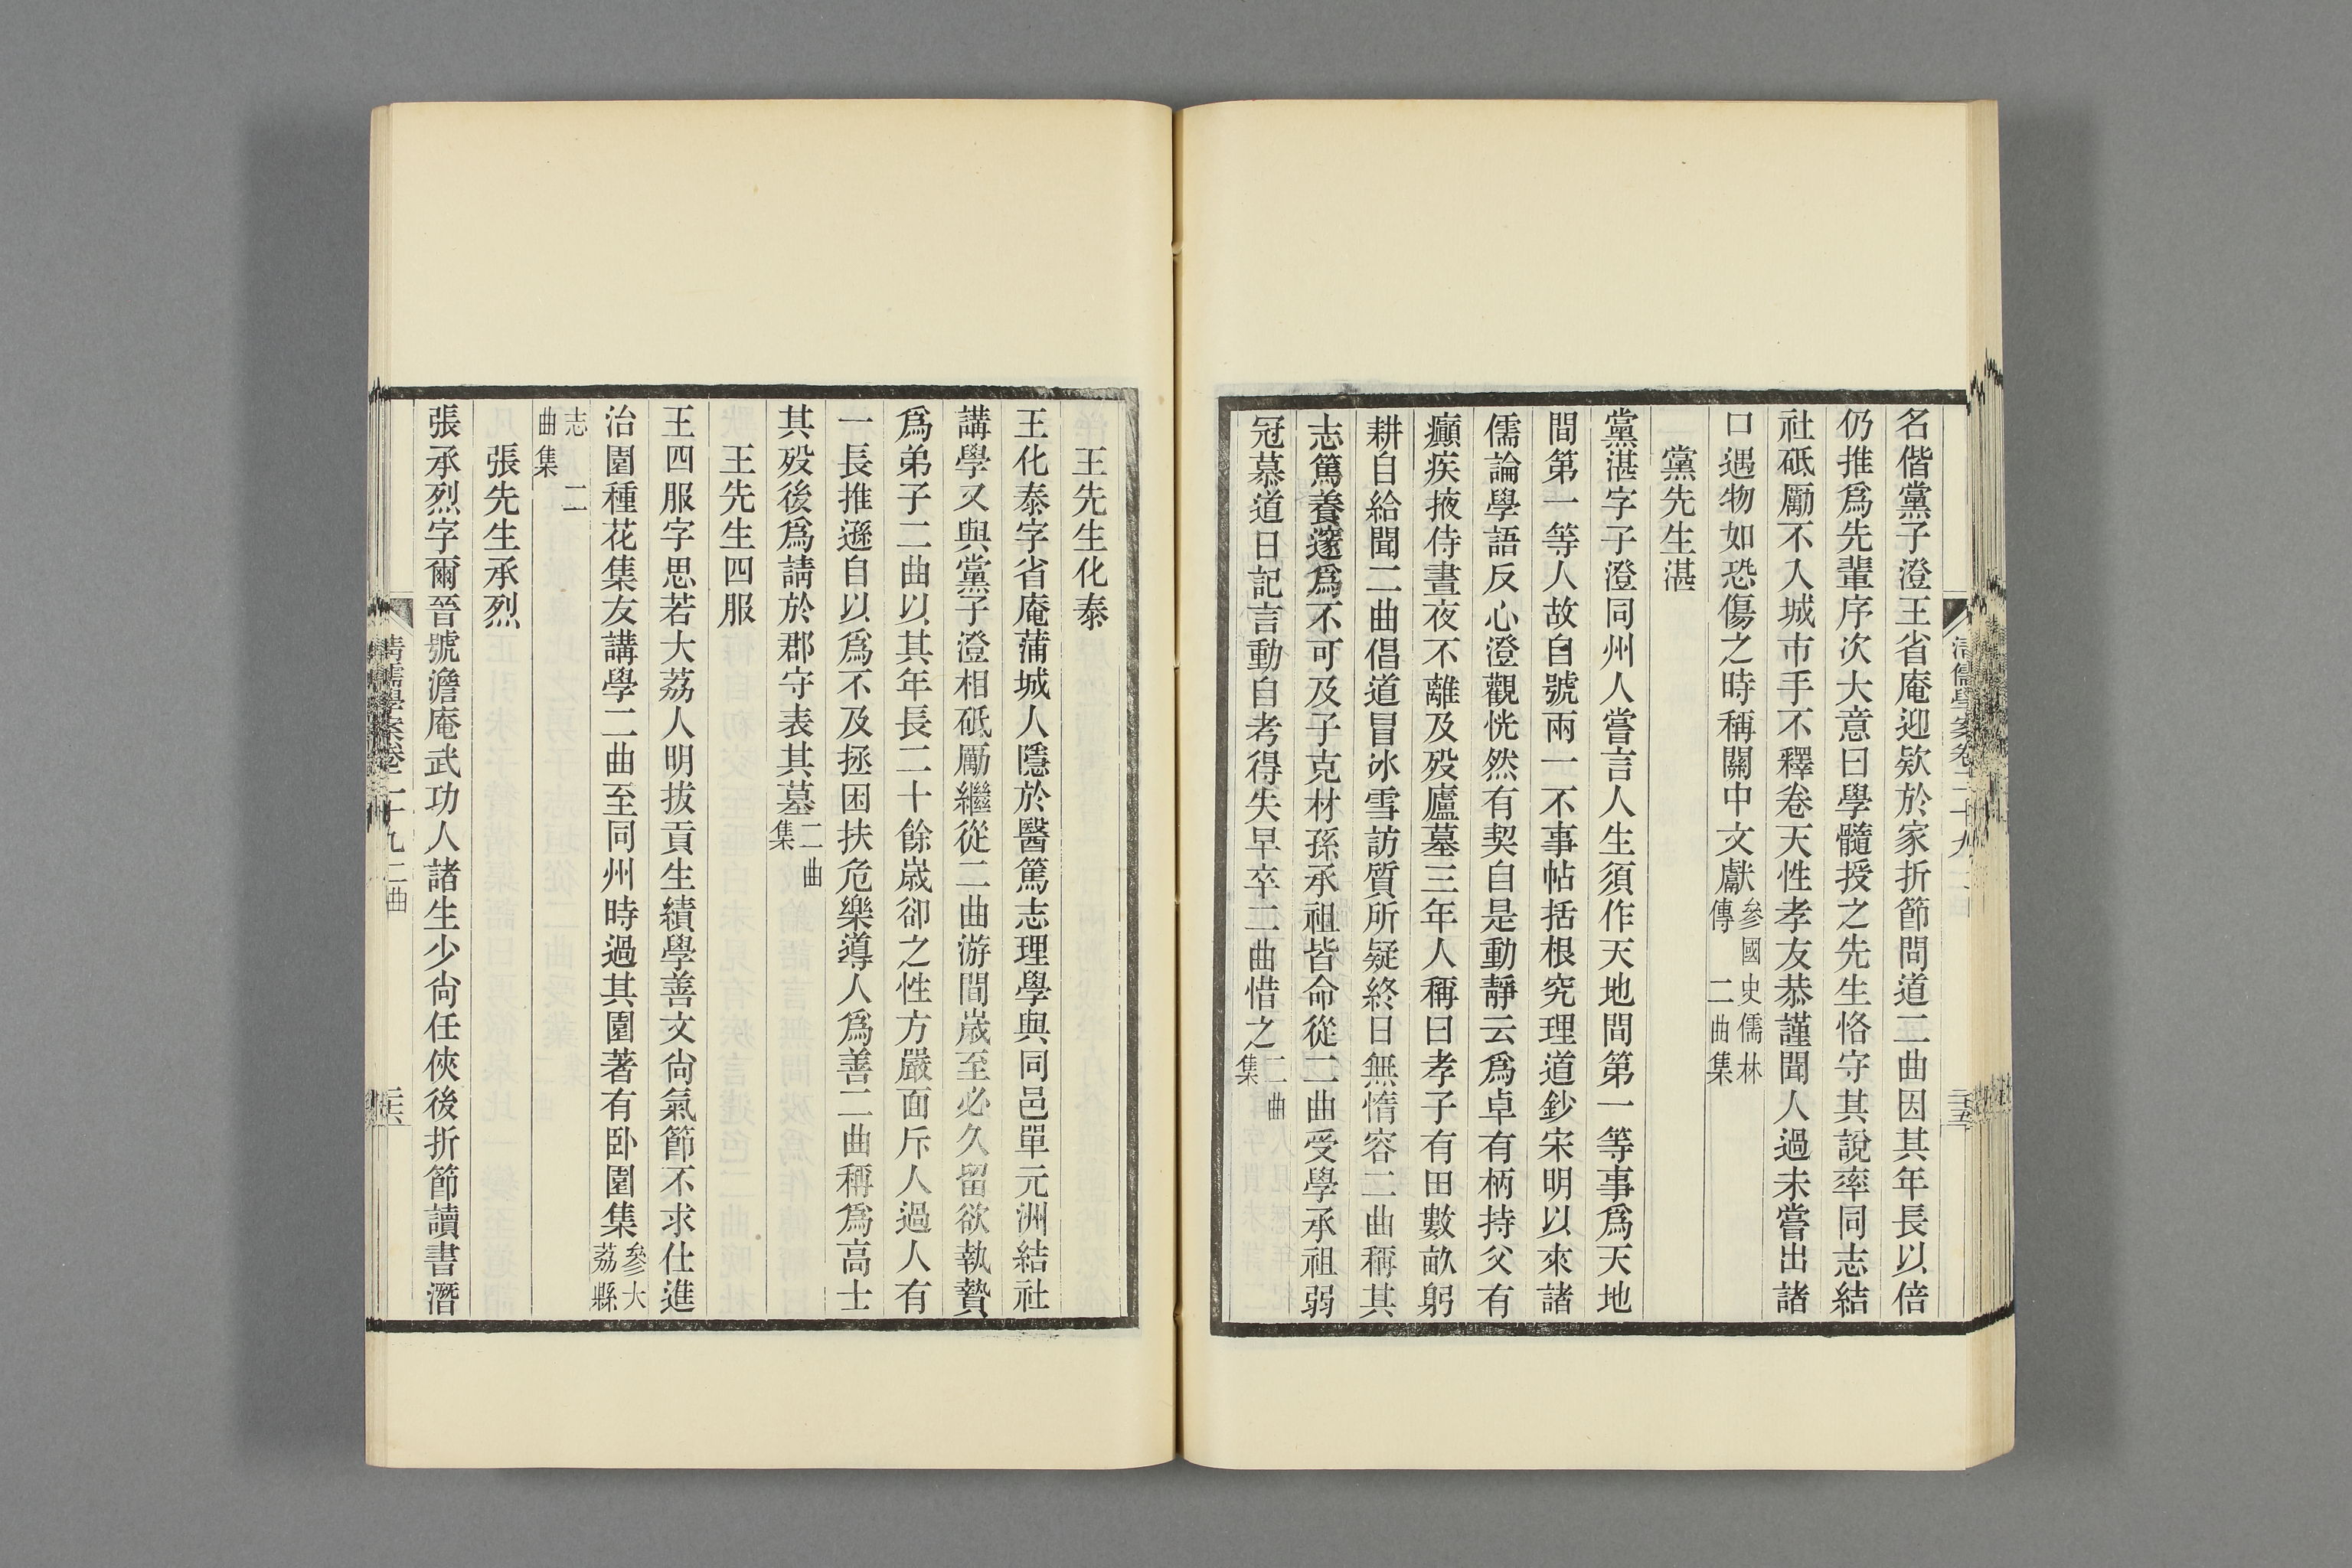 名偕黨子澄王省庵迎欵於家折節問道二曲因其年長以倍
仍推爲先輩序次大意曰學髓授之先生恪守其說率同志結
社砥勵不入城市手不釋卷天性孝友恭謹聞人過未嘗出諸
口遇物如恐傷之時稱關中文獻參國史儒林傳 二曲集
黨先生湛
黨湛字子澄同州人嘗言人生須作天地間第一等事爲天地
間第一等人故自號兩一不事帖括根究理道鈔宋明以來諸
儒論學語反心澄觀恍然有契自是動靜云爲卓有柄持父有
癲疾掖侍晝夜不離及歿廬墓三年人稱曰孝子有田數畝躬
耕自給聞二曲倡道冒冰雪訪質所疑終日無惰容二曲稱其
志篤養邃爲不可及子克材孫承祖皆命從二曲受學承祖弱
冠慕道日記言動自考得失早卒二曲惜之二曲集
清儒學案卷二十九 二曲
三五
王先生化泰
王化泰字省庵蒲城人隱於醫篤志理學與同邑單元洲結社
講學又與黨子澄相砥勵繼從二曲游間歲至必久留欲執贄
爲弟子二曲以其年長二十餘歲卻之性方嚴面斥人過人有
一長推遜自以爲不及拯困扶危樂導人爲善二曲稱爲高士
其歿後爲請於郡守表其墓二曲集
王先生四服
王四服字思若大荔人明拔貢生績學善文尙氣節不求仕進
治園種花集友講學二曲至同州時過其園著有卧園集參大荔縣
志 二曲集
張先生承烈
張承烈字爾晉號澹庵武功人諸生少尙任俠後折節讀書潛
清儒學案卷二十九 二曲
三六